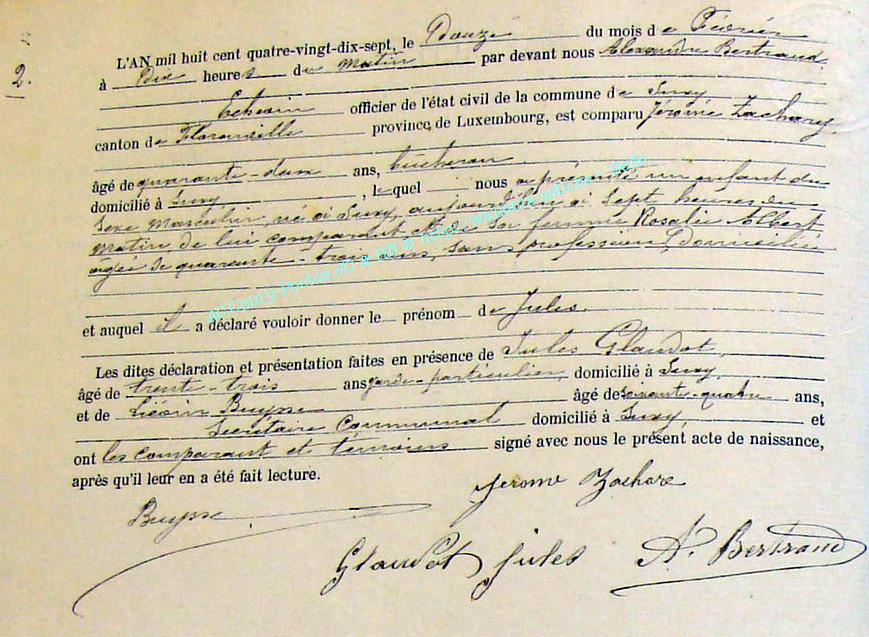 2.
L'AN mil huit cent quatre-vingt-dix-sept, le Douze du mois de Février
à Dix heures du Matin par devant nous Alexandre Bertrand,
Echevin officier de l'état civil de la commune de Suxy
canton de Florenville province de Luxembourg, est comparu Jérome Zachary,
âgé de quarante-deux ans, bucheron
domicilié à Suxy, lequel nous a présenté un enfant du
sexe Masculin né à Suxy, aujourd'hui à Sept heures du
Matin de lui comparant et de sa femme Rosalie Albert
âgée de quarante-trois ans, sans profession, domiciliée
et auquel il a déclaré vouloir donner le prénom de Jules.
Les dites déclaration et présentation faites en présence de Jules Glaudot,
âgé de trente-trois ans garde-particulier, domicilié à Suxy,
et de Buysse âgé de soixante-quatre ans,
Secrétaire Communal domicilié à Suxy, et
ont les comparant et témoins signé avec nous le présent acte de naissance,
après qu'il leur en a été fait lecture.
Jerome Zachare
Buysse
Glaudot Jules A. Bertrand